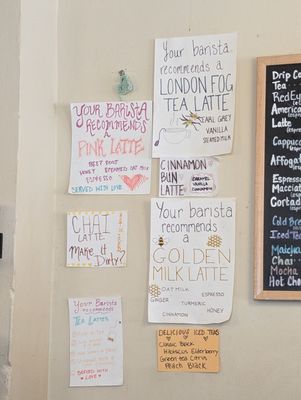 Your barista
recommends a
LONDON FOG
TEA LATTE
EARL GREY
VANILLA
STEAMED MILK
YOUR BARISTA
RECOMMENDS
a
PINK LATTE
BEET ROOT
HONEY STEAMED MILK
ESPRESSO
SERVED WITH
CINNAMON
BUN
LATTE
CARAMEL
VANILLA
CHAI
LATTE
Make it Dirty?
Your barista
recommends a
GOLDEN
MILK LATTE
OAT MILK
GINGER
ESPRESSO
TURMERIC
CINNAMON
HONEY
Your Barista
RECOMMENDS
Tea Lattes
SERVED WITH
LOVE
DELICIOUS ICED TEAS
Classic Black
Hibiscus Elderberry
Green tea Citrus
Peach Black
Drip
Tea
Red Ey
America
Latte
Cappuc
Affoga
Espress
Macciat
Cortado
Cold Bre
Iced
Matcha
Chai
Mocha
Hot Choc